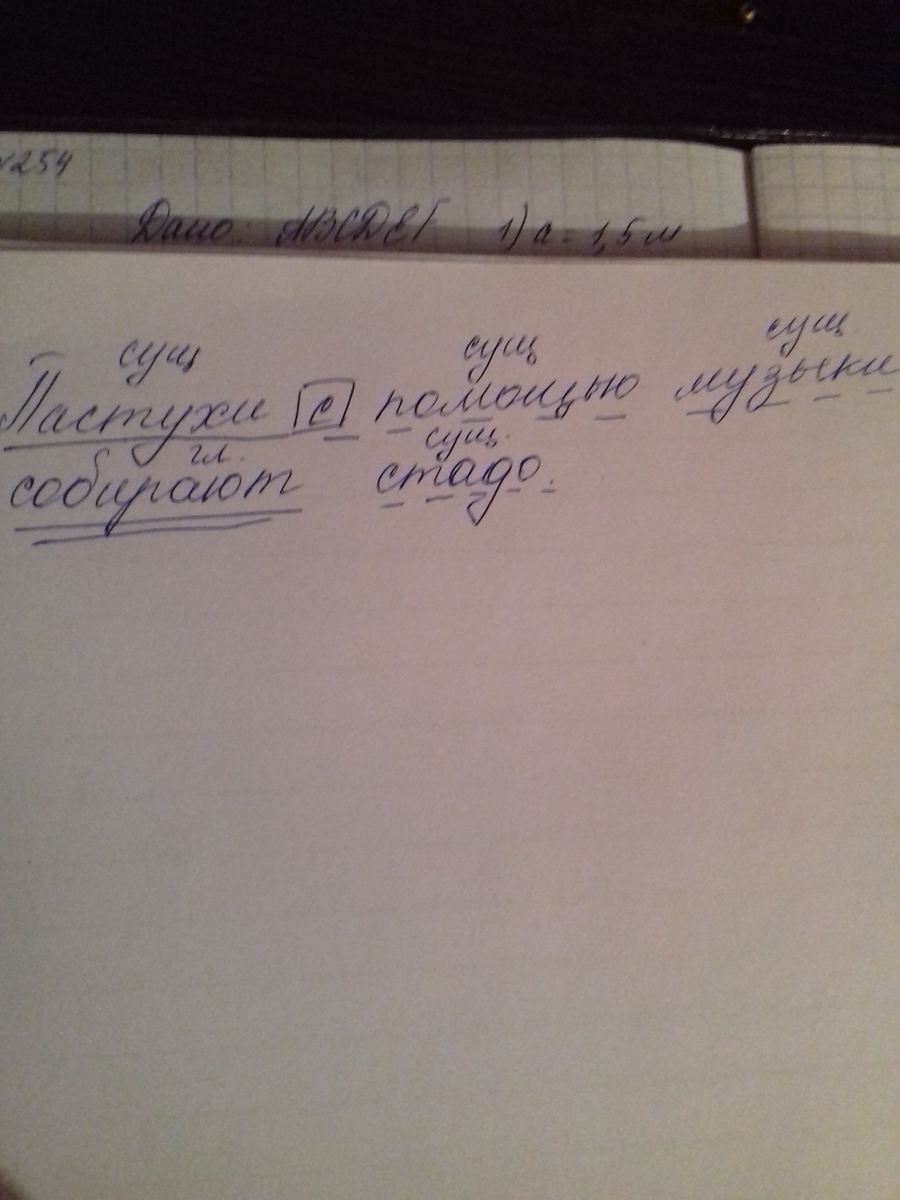 №254
Дано: ABCDEF 1) a = 1,5 м
сущ сущ сущ
Пастухи с помощью музыки
гл. сущ.
собирают стадо.